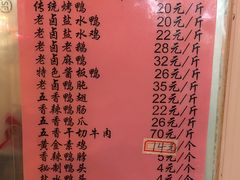 传统烤鸭 20元/斤
老卤盐水鸭 20元/斤
老卤盐水鸡 22元/斤
老卤老鹅 28元/斤
老卤麻鸭 32元/斤
特色酱板鸭 26元/斤
老卤鸭肫 35元/斤
五香鸭翅 22元/斤
香辣鸭肠 22元/斤
五香鸭爪 26元/斤
五香干切牛肉 70元/斤
黄金素鸡
香辣鸭脖 5元/个
秘制鸭头 4元/个
盐水鸭头 4元/个